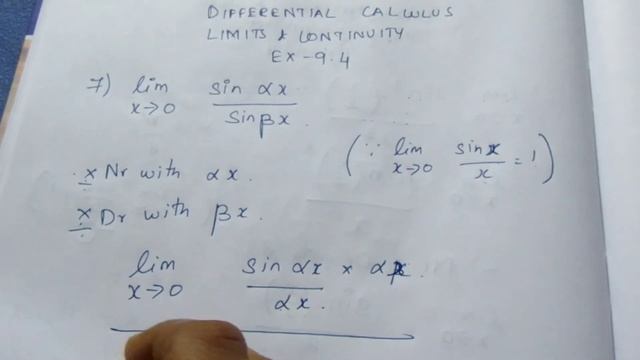 DIFFERENTIAL CALCULUS
LIMITS & CONTINUITY
EX-9.4
7) lim x→0 sin αx / sin βx
(∵ lim x→0 sin x / x = 1)
×÷ Nr with αx.
×÷ Dr with βx.
lim x→0 sin αx / αx. × αx.